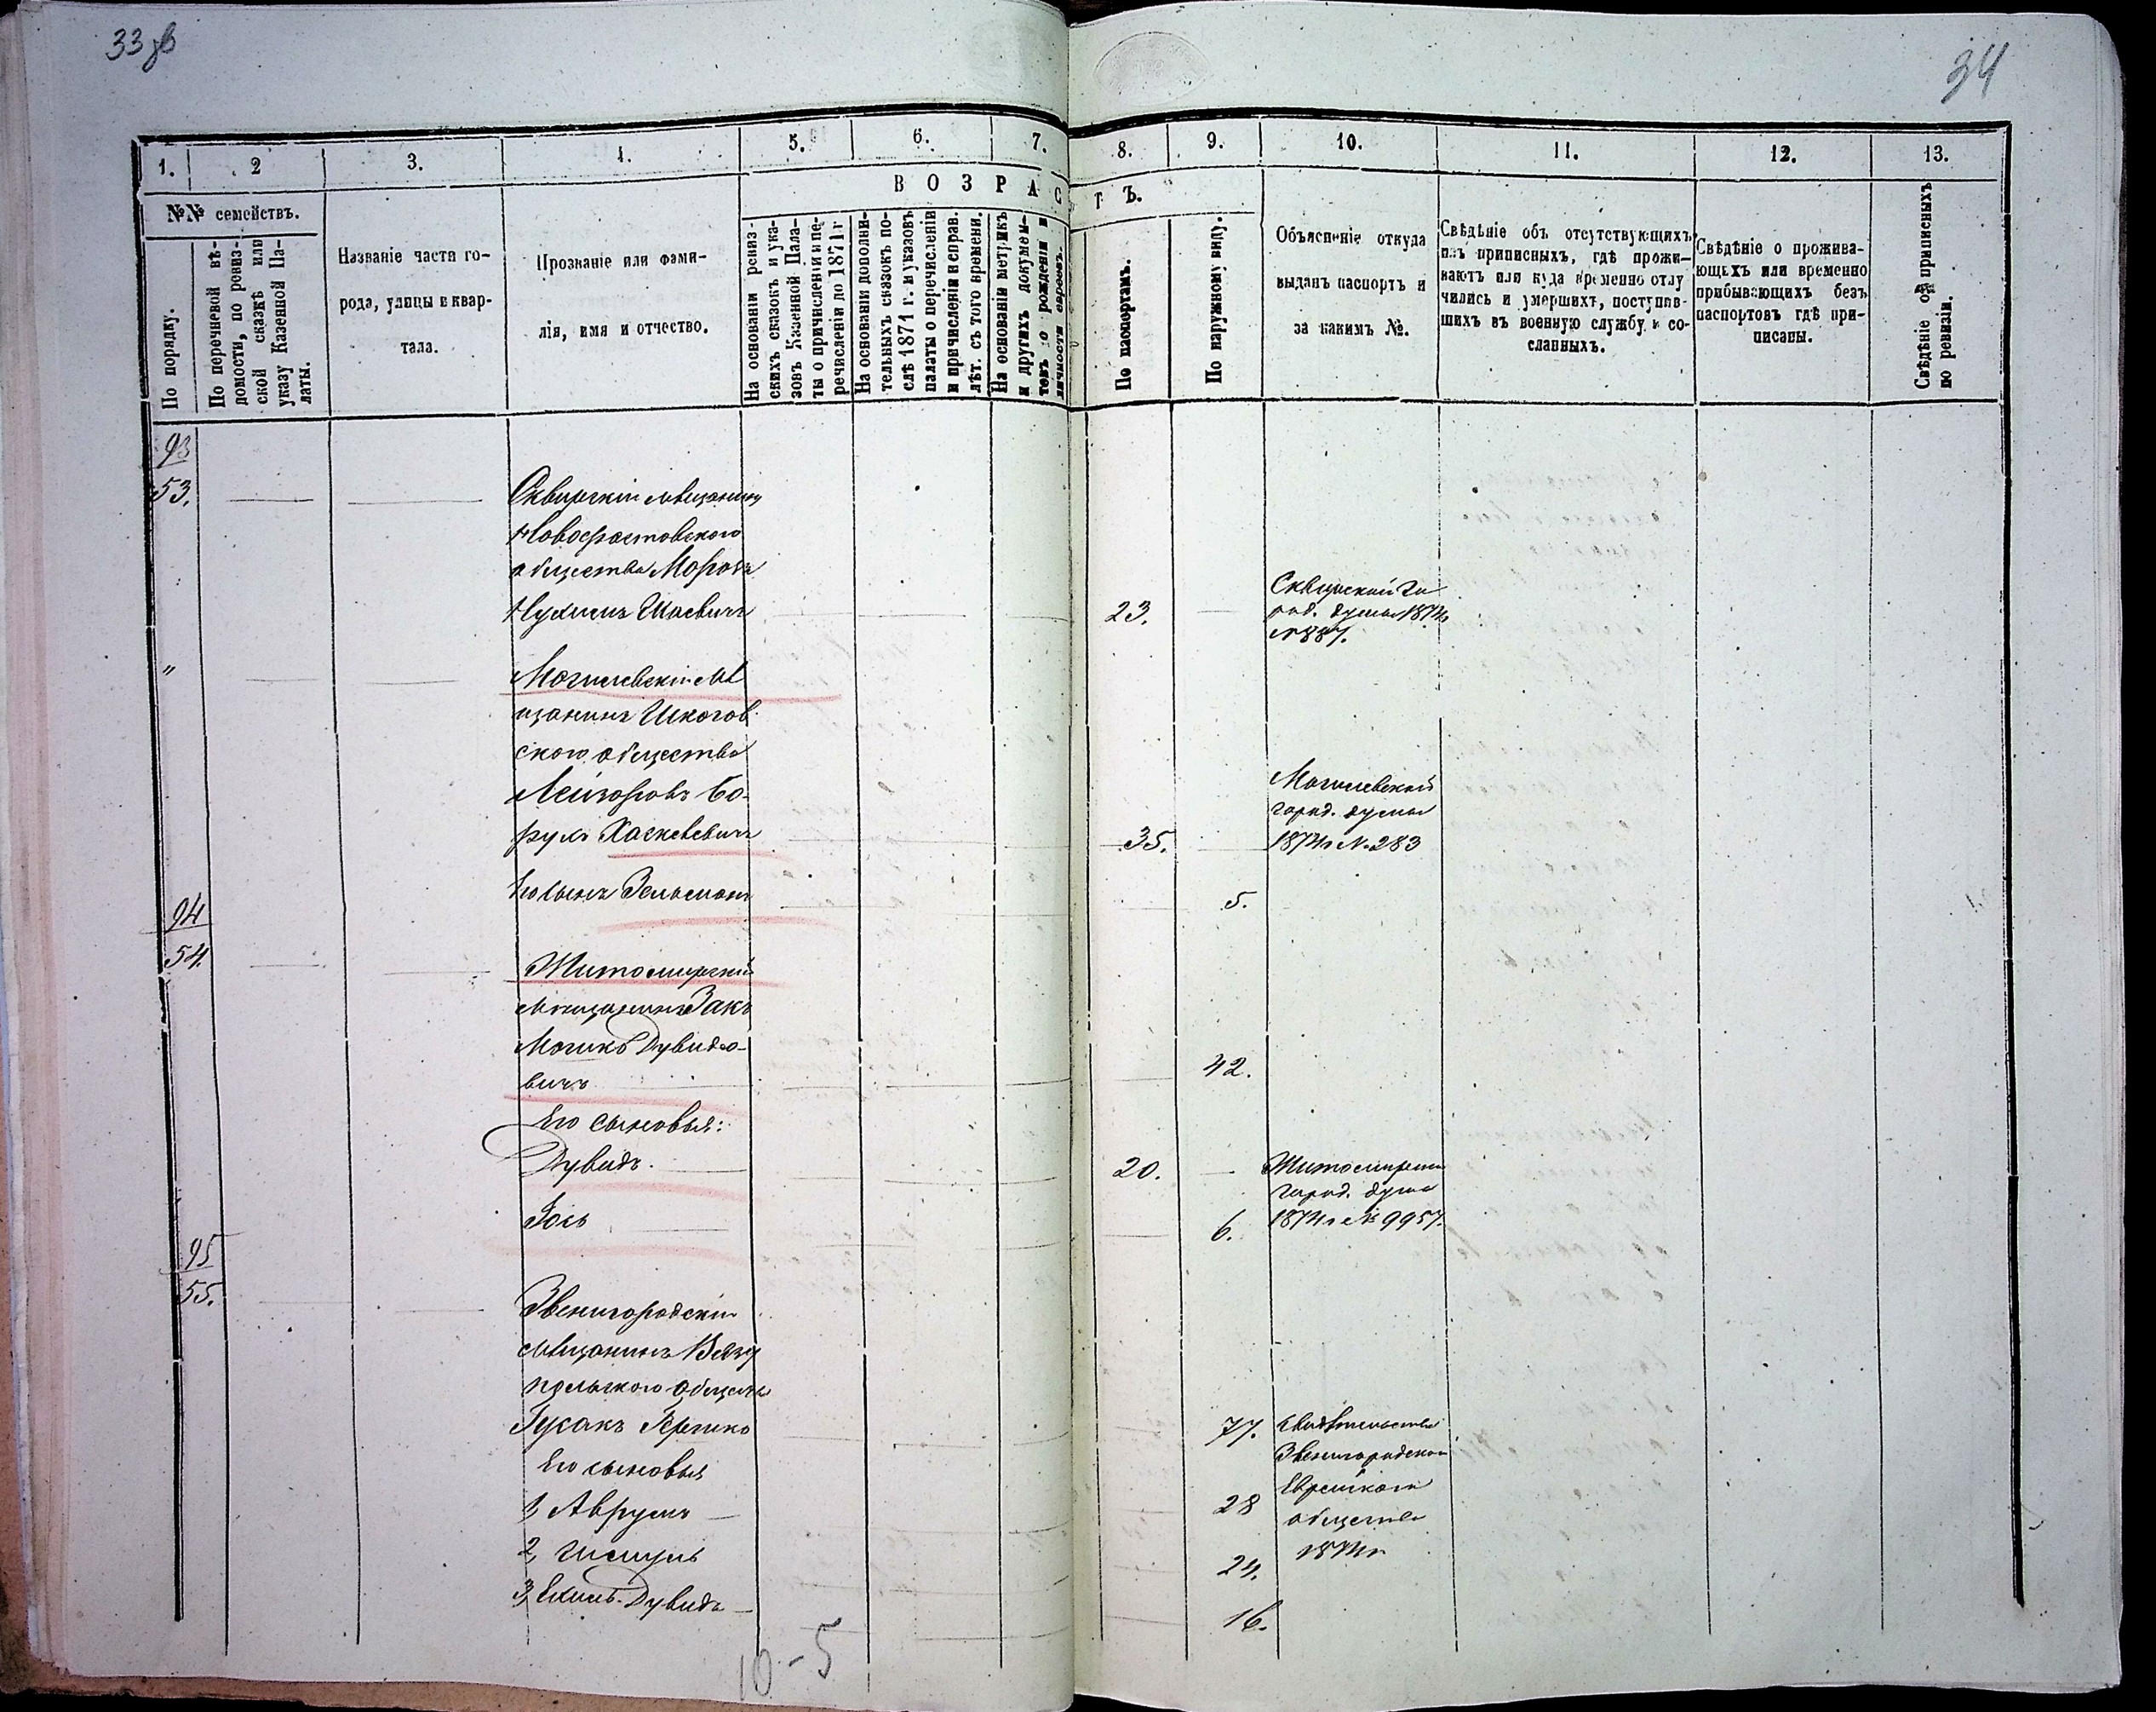 33 об
34
1.
2
3.
4.
5.
6.
7.
8.
9.
10.
11.
12.
13.
№№ семействъ.
ВОЗРАСТЪ.
По порядку.
По перечневой вѣ-
домости, по ревиз-
ской сказкѣ или
указу Казенной Па-
латы.
Названіе части го-
рода, улицы и квар-
тала.
Прозваніе или фами-
лія, имя и отчество.
На основаніи ревиз-
скихъ сказокъ и ука-
зовъ Казенной Пала-
ты о причисленіи и пе-
речисленіи до 1871 г.
На основаніи дополни-
тельныхъ сказокъ по-
слѣ 1871 г. и указовъ
палаты о перечисленіи
и причисленіи и исправ.
лѣт. съ того времени.
На основаніи метрикъ
и другихъ докумен-
товъ о рожденіи и
личности евреевъ.
По паспортамъ.
По наружному виду.
Объясненіе откуда
выданъ паспортъ и
за какимъ №.
Свѣдѣніе объ отсутствующихъ
изъ приписныхъ, гдѣ прожи-
ваютъ или куда временно отлу
чились и умершихъ, поступив-
шихъ въ военную службу и со-
сланныхъ.
Свѣдѣніе о прожива-
ющихъ или временно
прибывающихъ безъ
паспортовъ гдѣ при-
писаны.
Свѣдѣніе о приписныхъ
по ревизіи.
93
53.
Сквирскій мѣщанинъ
Новофастовскаго
общества
Нухимъ Шаевичъ
23.
Сквирской Го
род. думы 1874г
№887.
"
Могилевскій мѣ
щанинъ
ского общества
Бо-
рухъ Хаскелевичъ
35.
Могилевской
город. думы
1874г №283
Его сынъ Зельманъ
5.
94
54.
Житомирскій
мѣщанинъ Закъ
Мошко Дувидо-
вичъ
42.
Его сыновья:
Дувидъ.
20.
Житомирской
город. думы
1874г № 9957.
Іось
6.
95
55.
Звенигородскій
мѣщанинъ
польского общества
Гершко
77.
Свидѣтельство
Звенигородского
Еврейского
общества
1874г
Его сыновья
1, Аврумъ
28
2,
24.
3, Дувидъ
16.
10-5